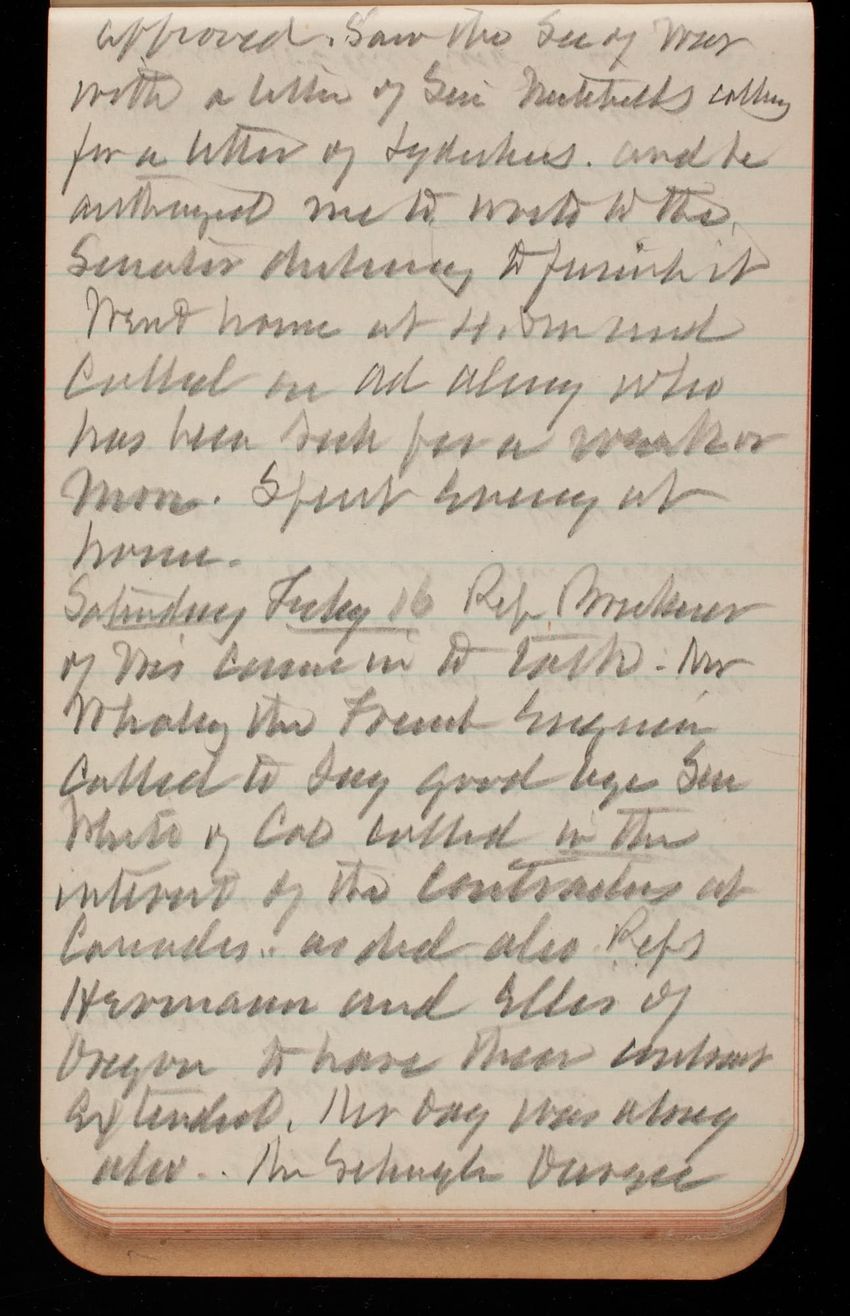 approved. Saw the Sec of War
with a letter of Sen Mitchells calling
for a letter of Lydeckers. and he
authorized me to write to the
Senator declining to furnish it
Went home at 4. and
Called on ad alexy who
has been sick for a week or
More. Spent Evening at
home.
Saturday Feby 16 Rep.
of Wis came in to talk. Mr
Whaley the French Engineer
called to say good bye Sen
White of Cal called in the
interest of the contractors at
Cascades. as did also Reps
Hermann and Ellis of
Oregon to have their contract
Extended. Mr Day was along
also. Mr